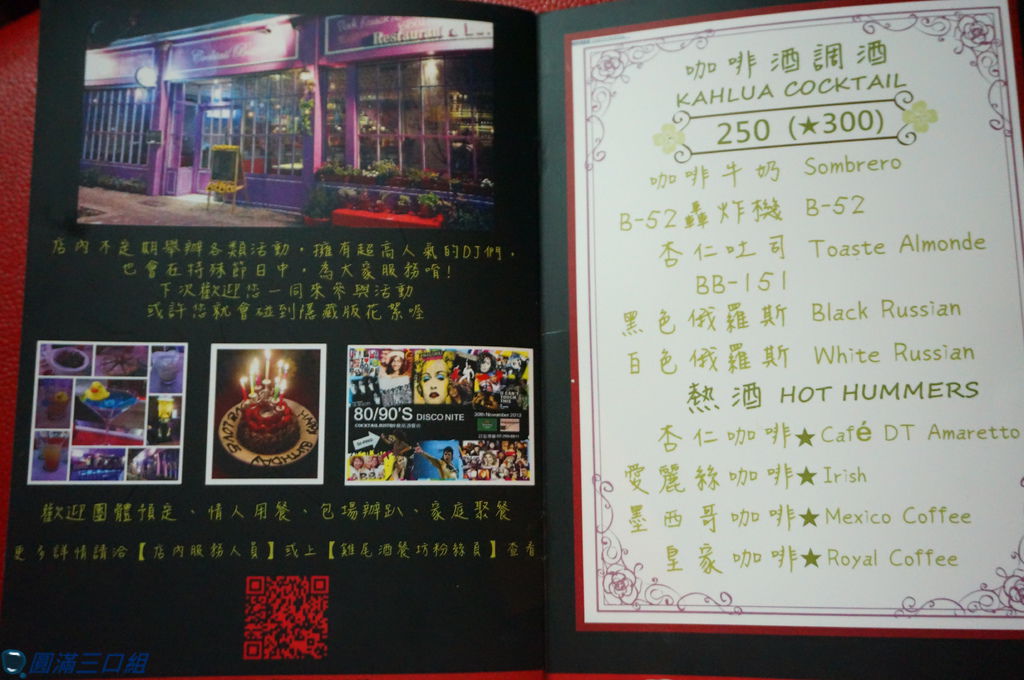 Restaurant & L
店內不定期舉辦各類活動，擁有超高人氣的DJ們，
也會在特殊節日中，為大家服務唷！
下次歡迎您一同來參與活動
或許您就會碰到隱藏版花絮喔
HAPPY BIRTHDAY
80/90'S DISCO NITE
歡迎團體預定、情人用餐、包場辦趴、家庭聚餐
更多詳情請洽【店內服務人員】或上【雞尾酒餐坊粉絲頁】查看
圓滿三口組
咖啡酒調酒
KAHLUA COCKTAIL
250 (★300)
咖啡牛奶 Sombrero
B-52轟炸機 B-52
杏仁吐司 Toaste Almonde
BB-151
黑色俄羅斯 Black Russian
白色俄羅斯 White Russian
熱酒 HOT HUMMERS
杏仁咖啡★Café DT Amaretto
愛麗絲咖啡★Irish
墨西哥咖啡★Mexico Coffee
皇家咖啡★Royal Coffee